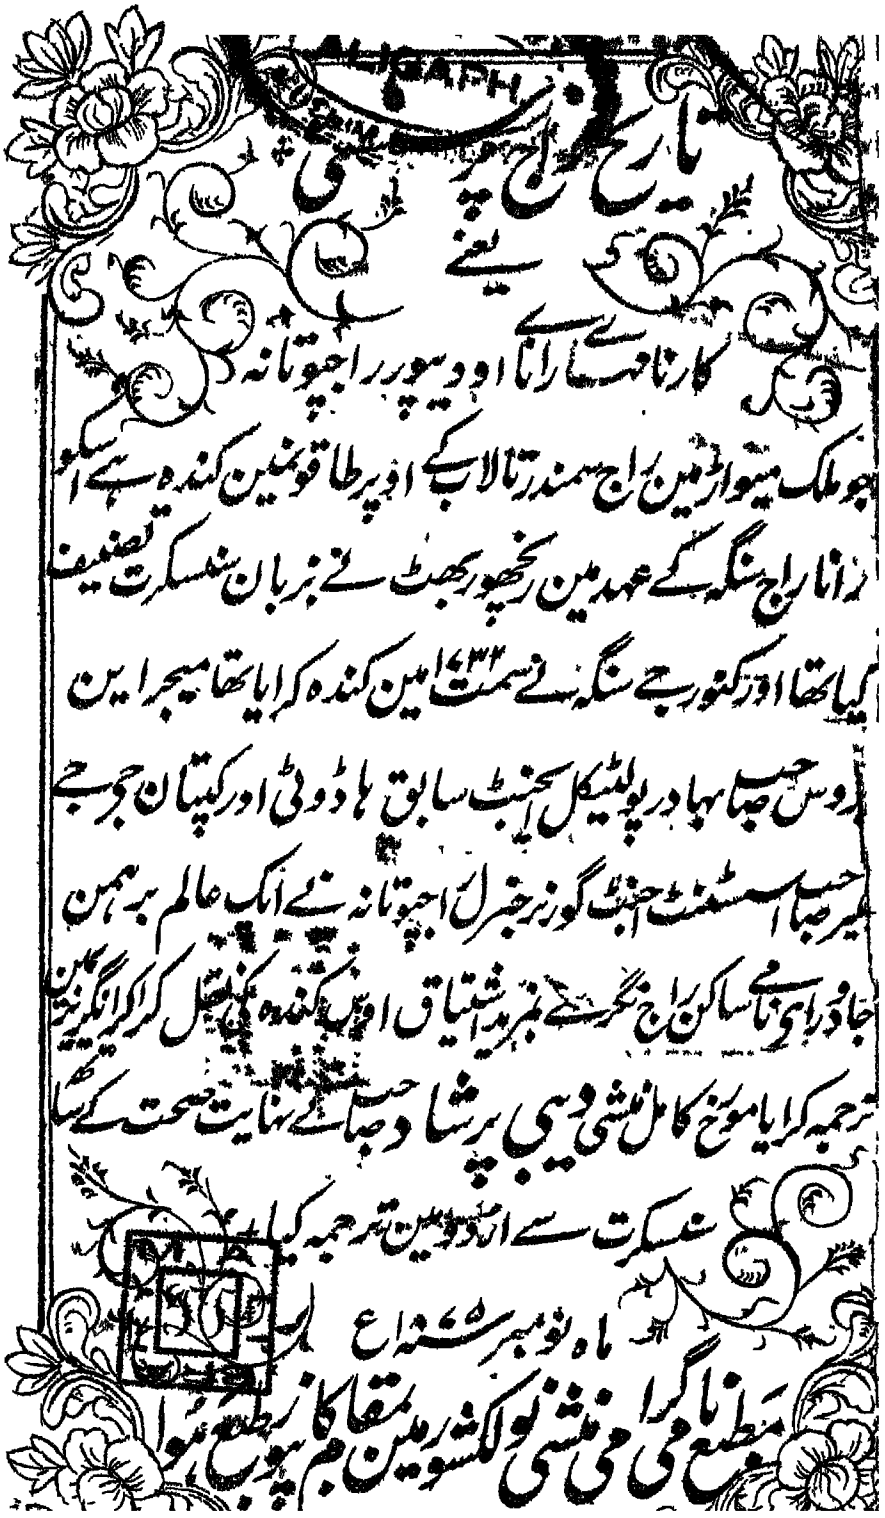 ALIGARH
تاریخ راج پرشستی
یعنے
کارنامہ ہاے رانا اودیپور راجپوتانہ
جو ملک میواڑ مین راج سمندر تالاب کے اوپر طاقونمین کندہ ہے اسکو
رانا راج سنگہ کے عہد مین رنچھور بھٹ نے بزبان سنسکرت تصنیف
کیا تھا اور کنور جے سنگہ نے سمت ۱۷۳۲ مین کندہ کرایا تھا میجر این
روس صاحب بہادر پولٹیکل ایجنٹ سابق ہاڈوٹی اور کپتان جی جے
میر صاحب اسسٹنٹ اجنٹ گورنر جنرل راجپوتانہ نے ایک عالم برہمن
جادو راے نامے ساکن راج نگر سے بمزید اشتیاق اوس کندہ کی نقل کرا کر انگریزی مین
ترجمہ کرایا مورخ کامل منشی دیبی پرشاد صاحب نے نہایت صحت کے ساتھ
سنسکرت سے اردو مین ترجمہ کیا
ماہ نومبر سنہ ۱۸۷۵ع
مطبع نامی گرامی منشی نولکشور مین بمقام کانپور طبع ہوا